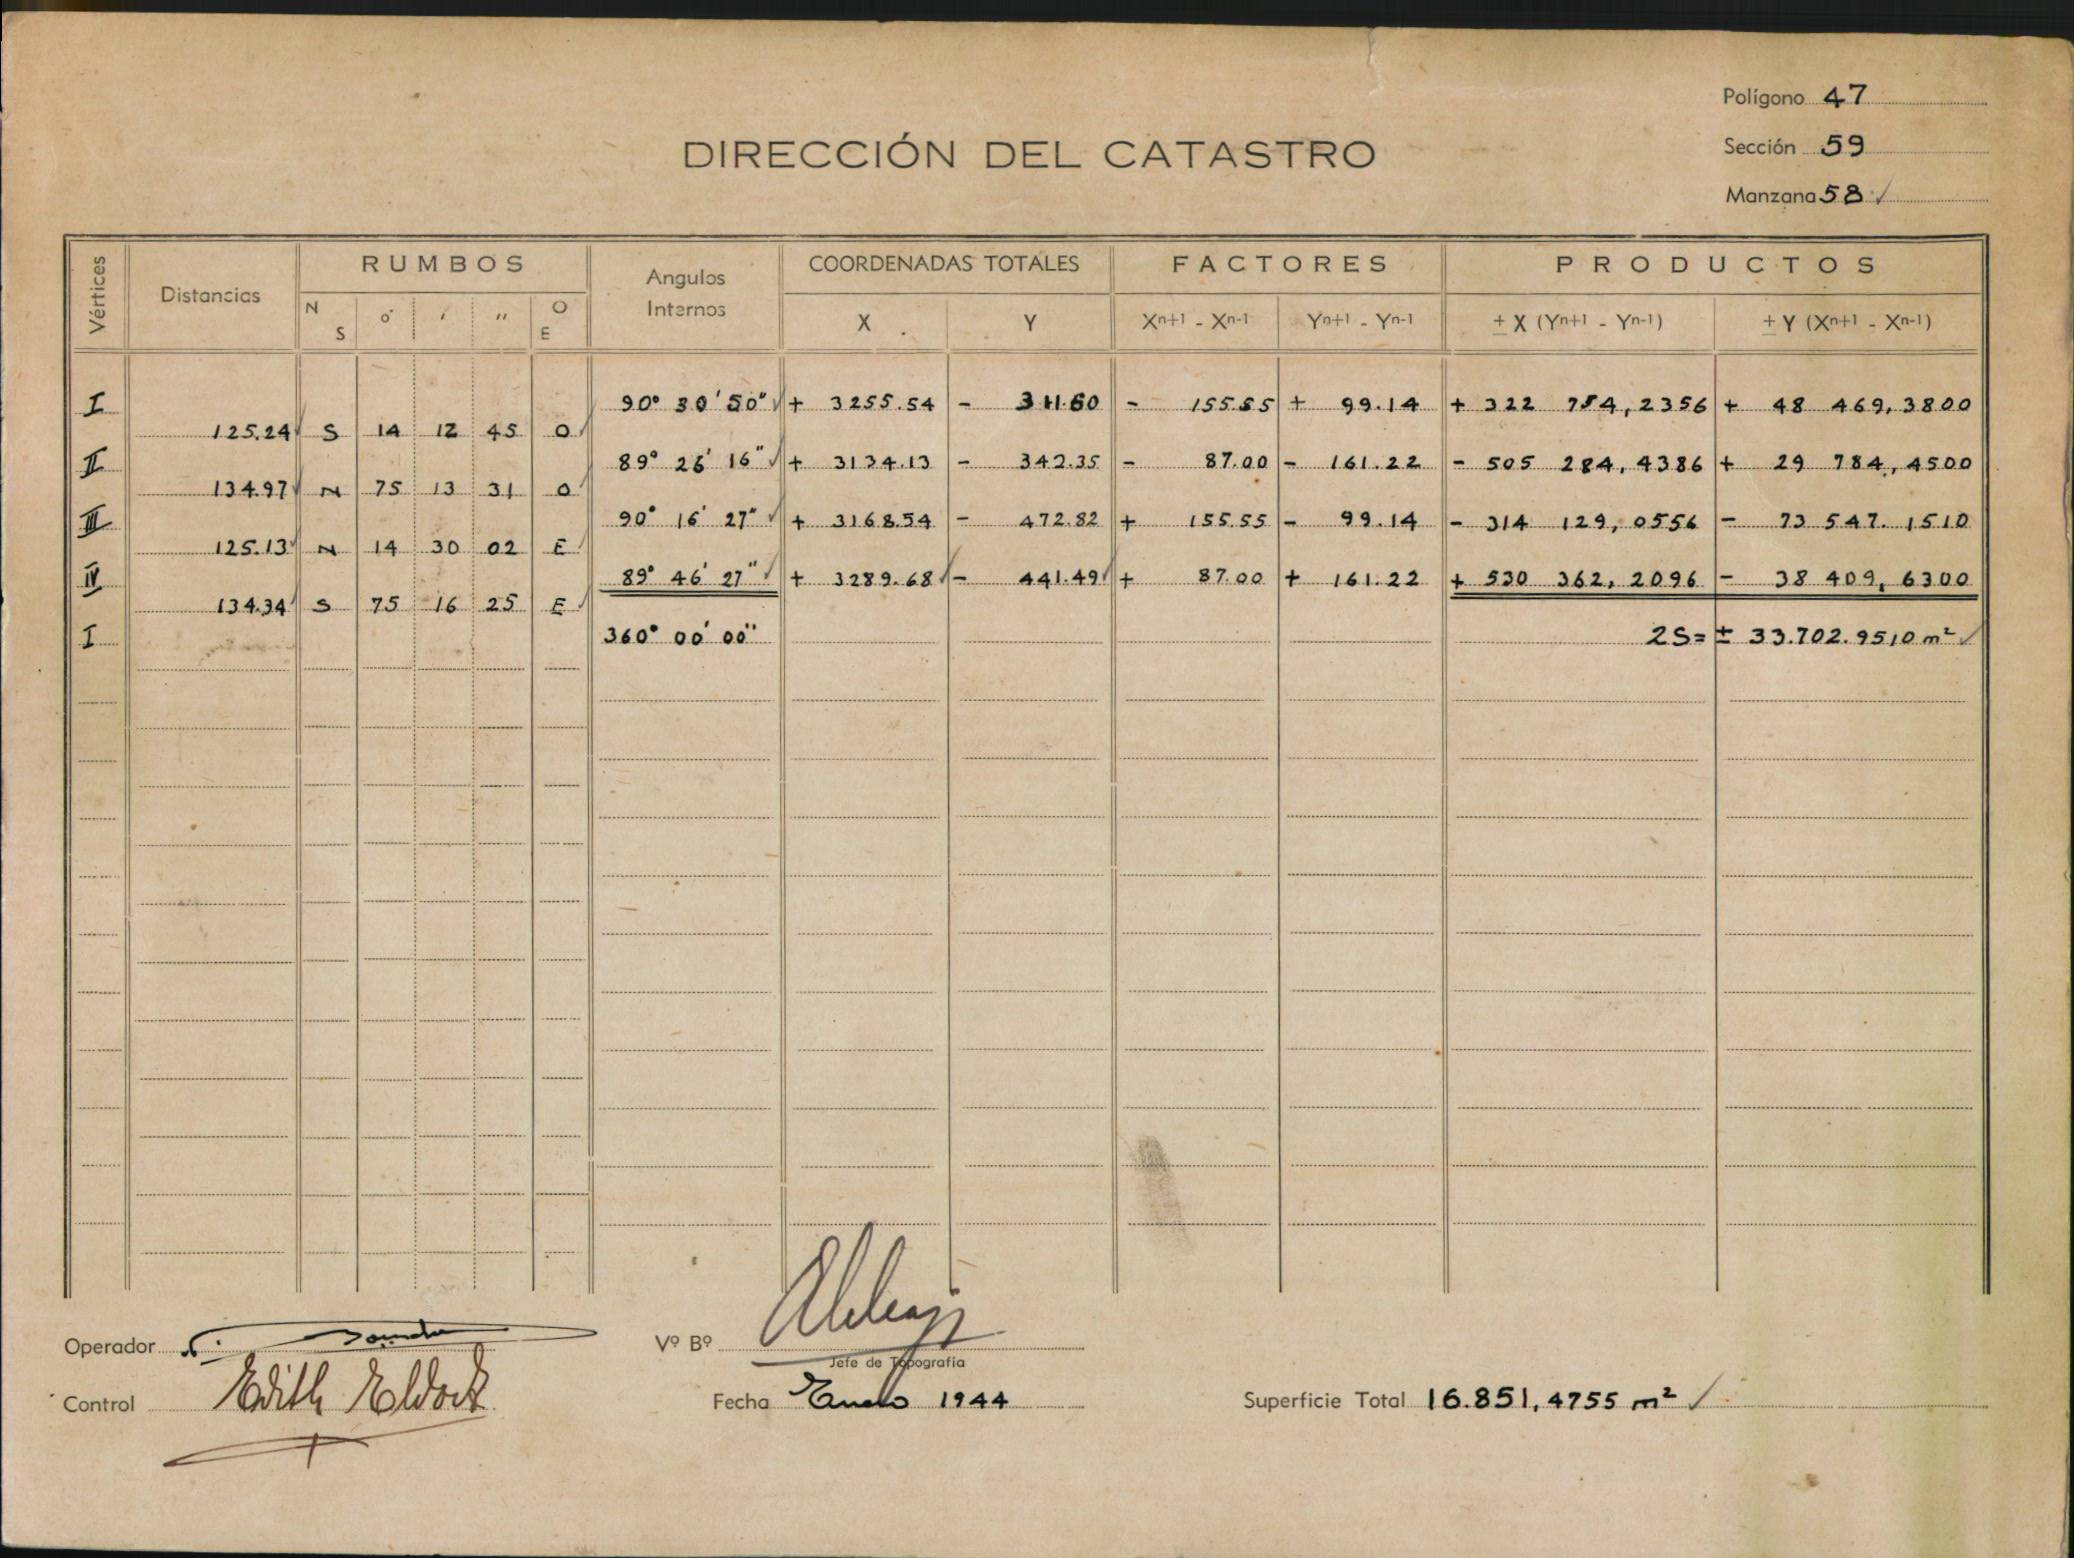 Polígono 47
DIRECCIÓN DEL CATASTRO
Sección 59
Manzana 58 ✓
Vértices Distancias RUMBOS Angulos Internos COORDENADAS TOTALES FACTORES PRODUCTOS
N S o ' '' O E X Y Xn+1 - Xn-1 Yn+1 - Yn-1 ± X (Yn+1 - Yn-1) ± Y (Xn+1 - Xn-1)
I 90° 30' 50" ✓ + 3255.54 - 311.60 - 155.55 + 99.14 + 322 754,2356 + 48 469,3800
125.24 ✓ S 14 12 45 O ✓
II 89° 26' 16" ✓ + 3134.13 - 342.35 - 87.00 - 161.22 - 505 284,4386 + 29 784,4500
134.97 ✓ N 75 13 31 O ✓
III 90° 16' 27" ✓ + 3168.54 - 472.82 + 155.55 - 99.14 - 314 129,0556 - 73 547.1510
125.13 ✓ N 14 30 02 E ✓
IV 89° 46' 27" ✓ + 3289.68 ✓ - 441.49 ✓ + 87.00 + 161.22 + 530 362,2096 - 38 409,6300
134.34 ✓ S 75 16 25 E ✓
I 360° 00' 00" 2S= ± 33.702.9510 m² ✓
Operador
Vº Bº
Jefe de Topografía
Control Edith
Fecha Enero 1944
Superficie Total 16.851,4755 m² ✓